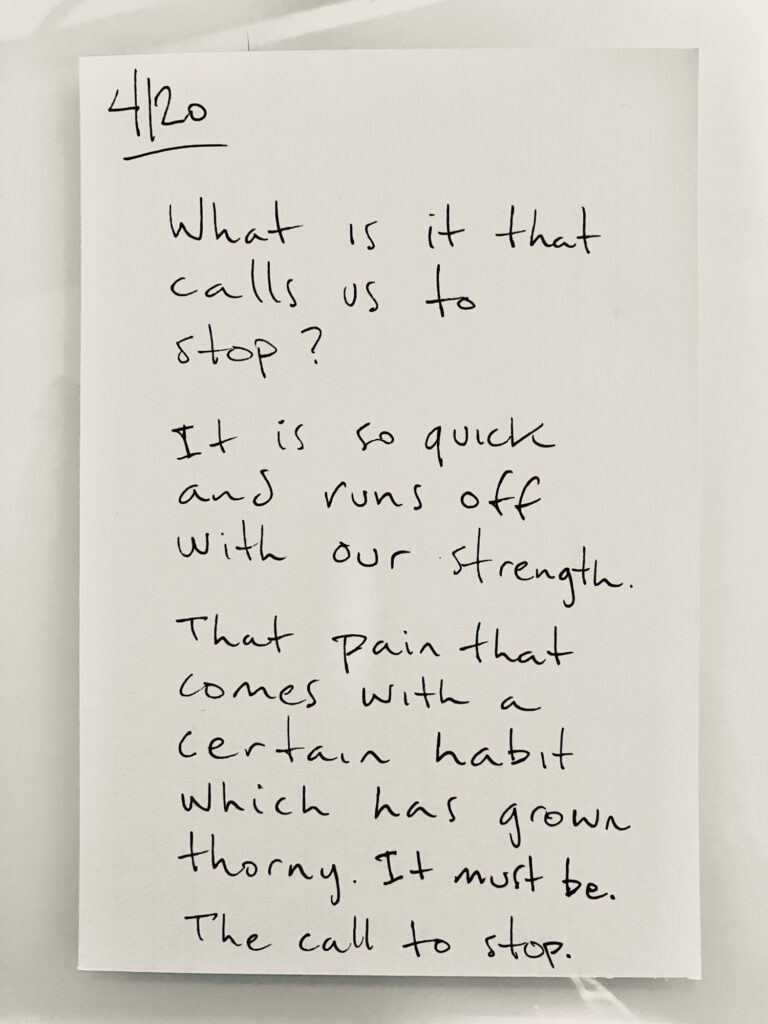 4/20
What is it that
calls us to
stop?
It is so quick
and runs off
with our strength.
That pain that
comes with a
certain habit
which has grown
thorny. It must be.
The call to stop.